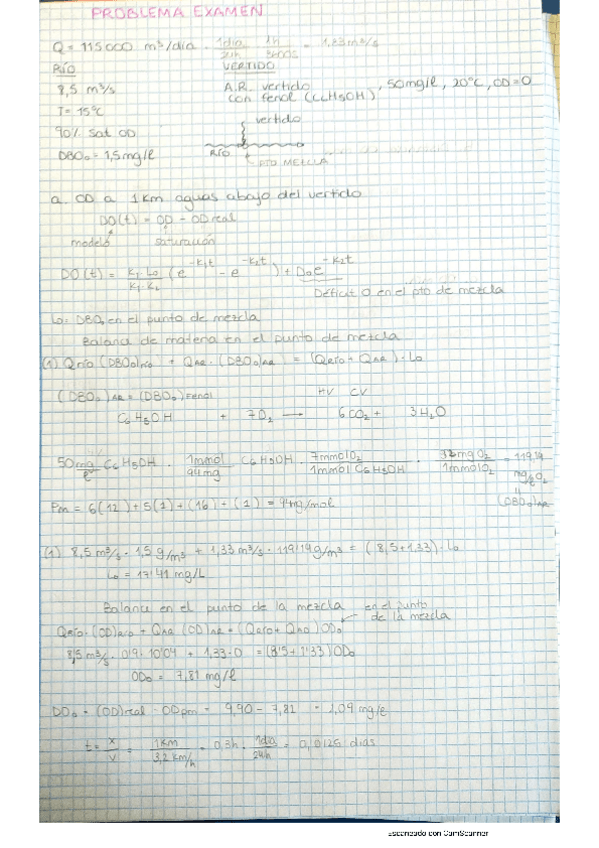 PROBLEMA EXAMEN
Q = 115000 m³/día · 1día/24h · 1h/3600s = 1,33 m³/s
RÍO VERTIDO
8,5 m³/s A.R. vertido con fenol (C6H5OH), 50mg/l, 20°C, OD=0
T = 15°C
90% sat OD vertido
DBO₀ = 1,5 mg/l RÍO pto MEZCLA
a. OD a 1 Km aguas abajo del vertido
DO(t) = OD - OD real
modelo saturación
DO(t) = K₁·L₀/K₁-K₂ (e^-K₁t - e^-K₂t) + D₀e^-K₂t
Déficit O en el pto de mezcla
L₀ = DBO, en el punto de mezcla
Balance de materia en el punto de mezcla
(1) Qrío (DBO₀)río + QAR · (DBO₀)AR = (Qrío + QAR) · L₀
(DBO₀)AR = (DBO₀)Fenol
C6H5OH + 7O₂ → 6CO₂ + 3H₂O
50 mg/l C6H5OH · 1mmol C6H5OH/94mg · 7mmolO₂/1mmol C6H5OH · 32mgO₂/1mmolO₂ = 119'14 mg/l O₂
(DBO₀)AR
Pm = 6(12) + 5(1) + (16) + (1) = 94mg/mol
(1) 8,5 m³/s · 1,5 g/m³ + 1,33 m³/s · 119'14 g/m³ = (8,5+1,33) · L₀
L₀ = 17'41 mg/L
Balance en el punto de la mezcla
en el punto de la mezcla
Qrío · (OD)río + QAR (OD)AR = (Qrío + QAR) OD₀
8,5 m³/s · 0'9 · 10'04 + 1,33 · 0 = (8'5+1'33) OD₀
OD₀ = 7,81 mg/l
DO₀ = (OD)real - ODpm = 9,90 - 7,81 = 1,09 mg/l
t = x/v = 1Km/3,2 Km/h = 0,3h · 1día/24h = 0,0125 días
Escaneado con CamScanner